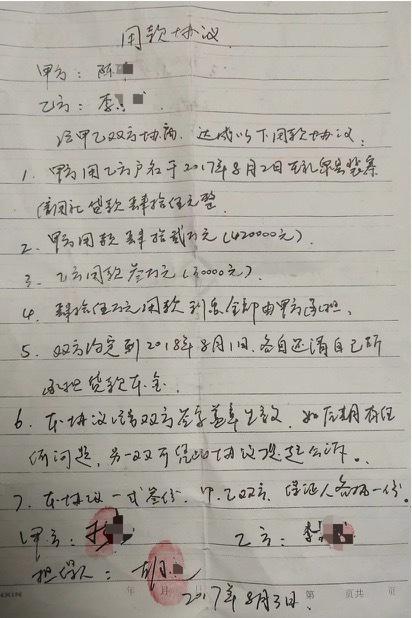 用款协议
甲方：陈
乙方：李
经甲乙双方协商，达成以下用款协议：
1、甲方用乙方户名于2017年8月2日在礼泉县
信用社贷款肆拾伍万元整
2、甲方用款肆拾贰万元（420000元）.
3、乙方用款叁万元（30000元）
4、肆拾伍万元用款利息全部由甲方承担、
5、双方约定到2018年8月1日、各自还清自己所
承担贷款本金.
6、本协议经双方签字盖章生效、如后期有任
何问题，另一双可凭此协议提起公诉。
7、本协议一式叁份、甲、乙双方、保证人各执一份。
甲方：
乙方：李
担保人：
年 月 第 页共 页
2017年8月3日.